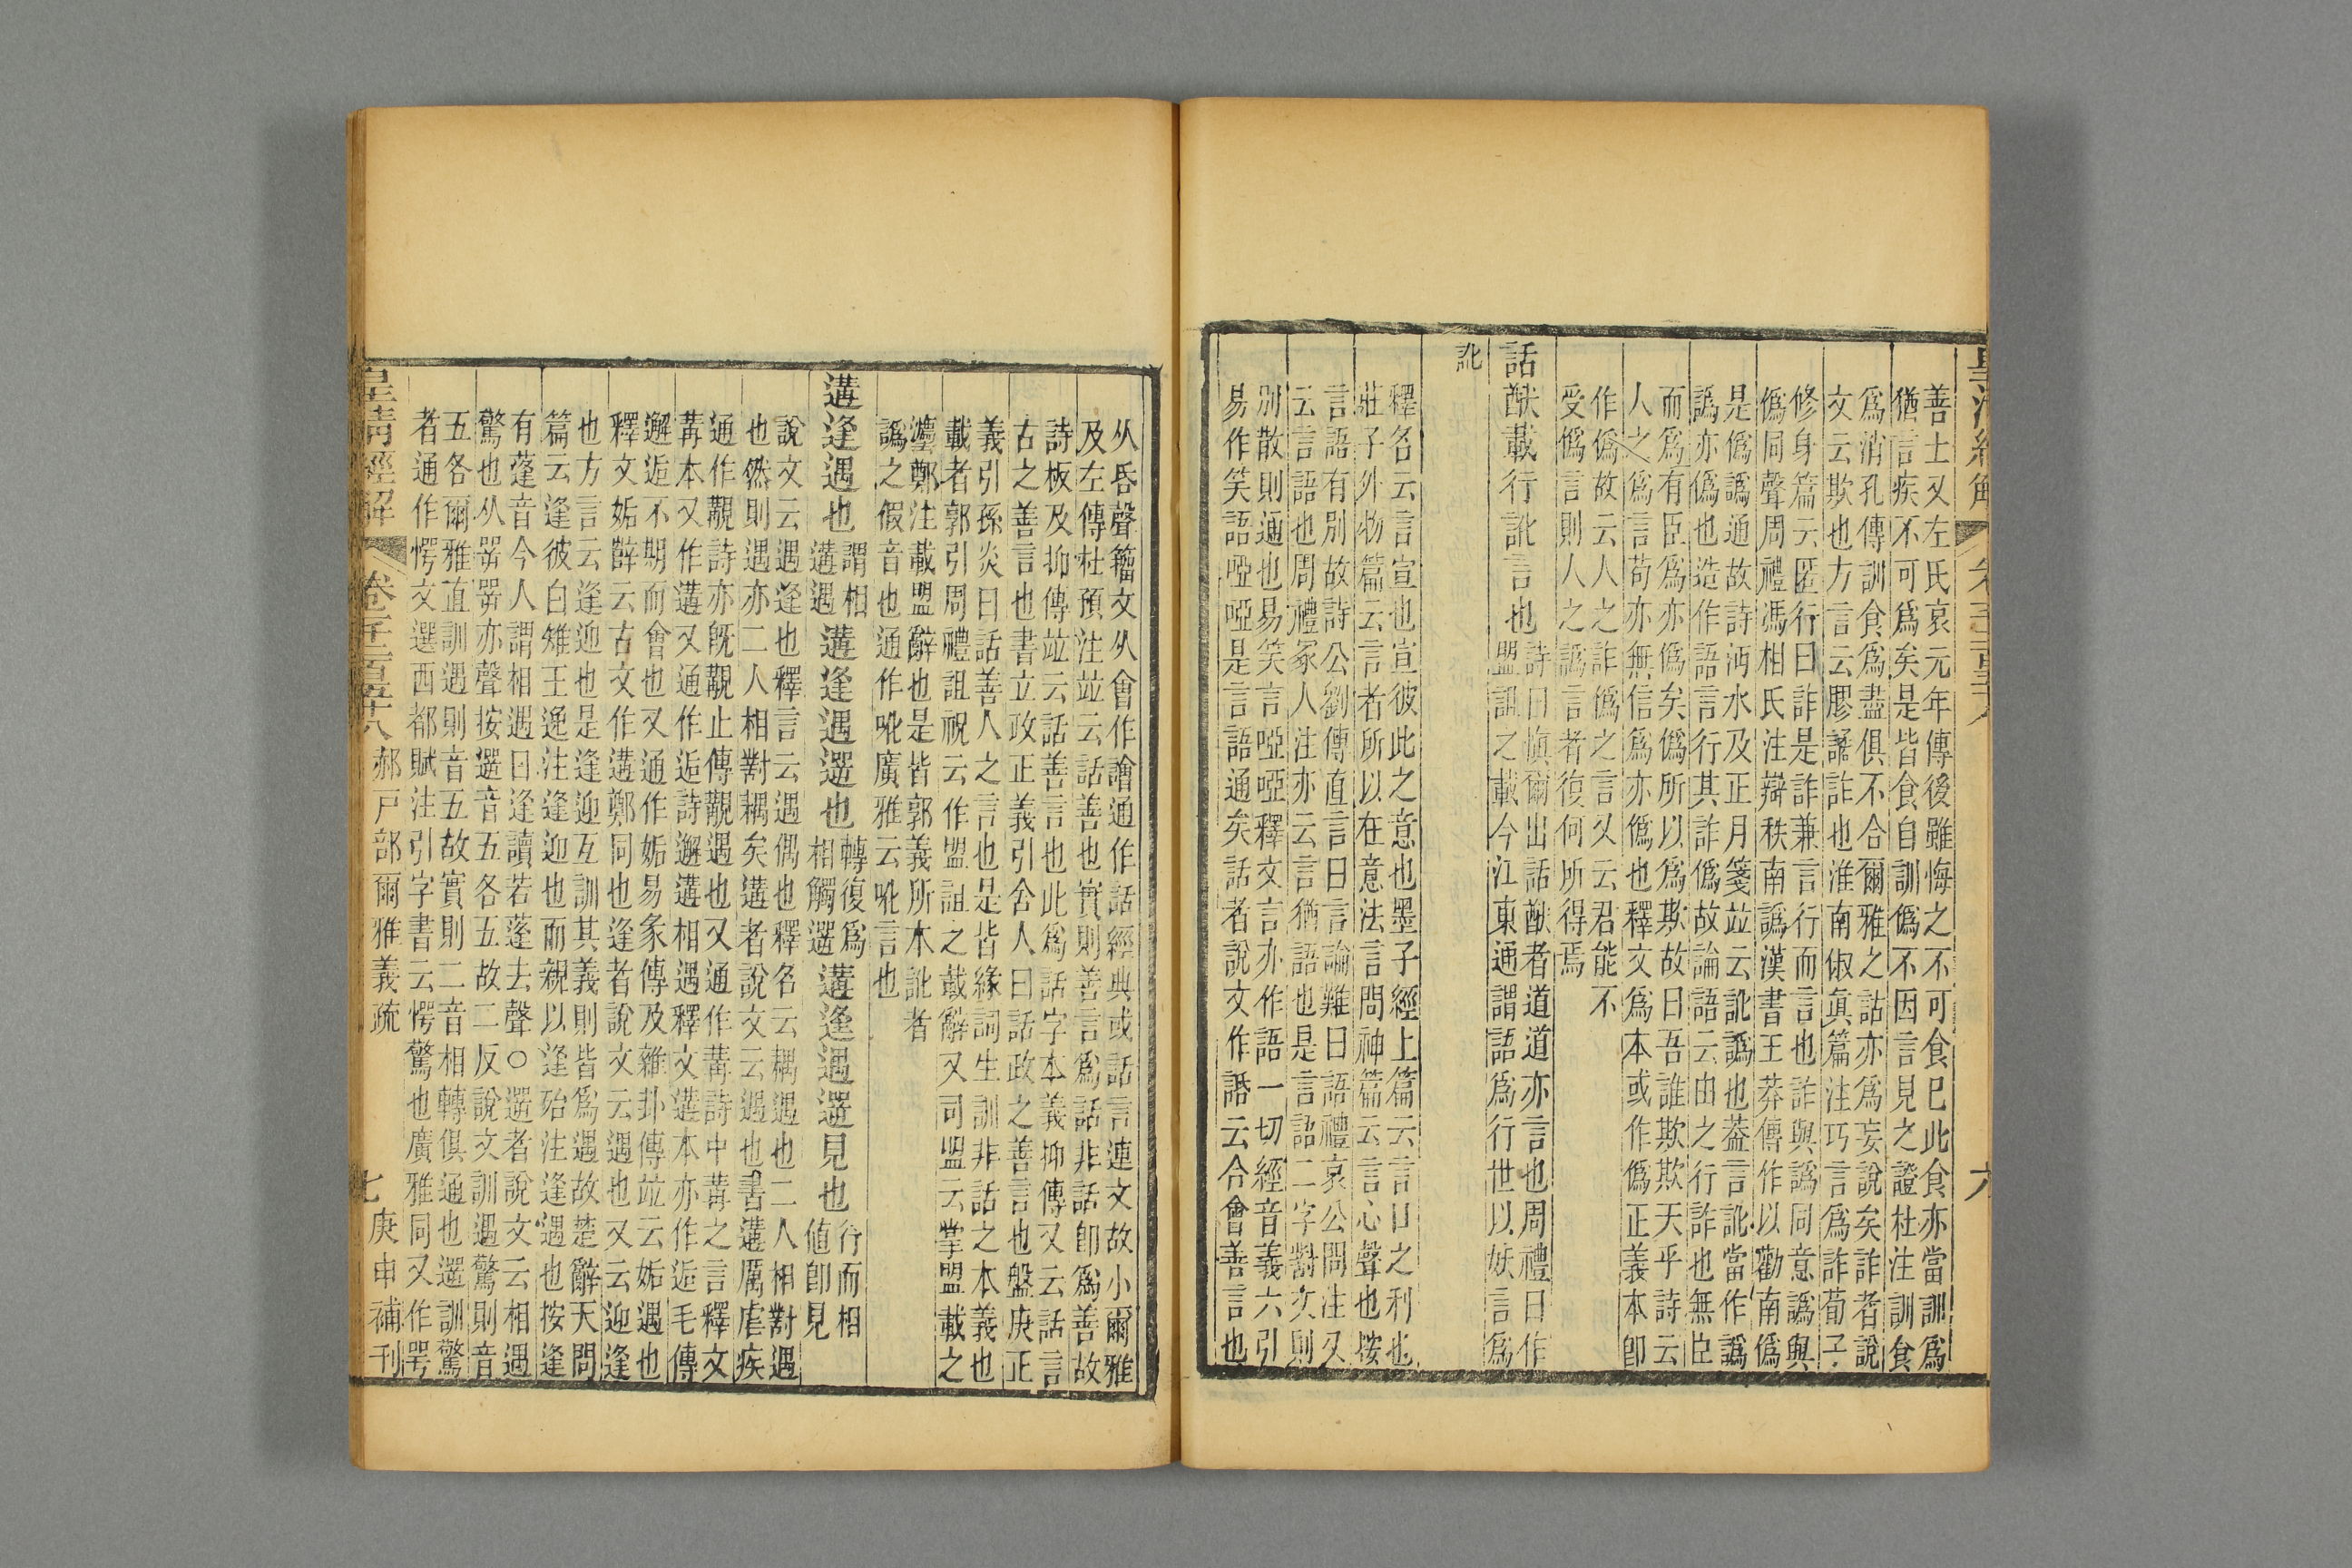 善士又左氏哀元年傳後雖悔之不可食已此食亦當訓爲
猶言疾不可爲矣是皆食自訓僞不因言見之證杜注訓食
爲消孔傳訓食爲盡俱不合爾雅之詁亦爲妄說矣詐者說
文云欺也方言云膠譎詐也淮南俶眞篇注巧言爲詐荀子
修身篇云匿行曰詐是詐兼言行而言也詐與譌同意譌與
僞同聲周禮馮相氏注辯秩南譌漢書王莽傳作以勸南僞
是僞譌通故詩沔水及正月箋竝云訛譌也葢言訛當作譌
譌亦僞也造作語言行其詐僞故論語云由之行詐也無臣
而爲有臣爲亦僞矣僞所以爲欺故曰吾誰欺欺天乎詩云
人之爲言苟亦無信爲亦僞也釋文爲本或作僞正義本卽
作僞故云人之詐僞之言又云君能不
受僞言則人之譌言者復何所得焉
話猷載行訛言也
詩曰愼爾出話猷者道道亦言也周禮曰作
盟詛之載今江東通謂語爲行世以妖言爲
訛
釋名云言宣也宣彼此之意也墨子經上篇云言口之利也
莊子外物篇云言者所以在意法言問神篇云言心聲也按
言語有別故詩公劉傳直言曰言論難曰語禮哀公問注又
云言語也周禮冢人注亦云言猶語也是言語二字對文則
別散則通也易笑言啞啞釋文言亦作語一切經音義六引
易作笑語啞啞是言語通矣話者說文作䛡云合會善言也
从𠯑聲籀文从會作譮通作話經典或話言連文故小爾雅
及左傳杜預注竝云話善也實則善言爲話非話卽爲善故
詩板及抑傳竝云話善言也此爲話字本義抑傳又云話言
古之善言也書立政正義引舍人曰話政之善言也盤庚正
義引孫炎曰話善人之言也是皆緣詞生訓非話之本義也
載者郭引周禮詛祝云作盟詛之載辭又司盟云掌盟載之
灋鄭注載盟辭也是皆郭義所本訛者
譌之假音也通作吪廣雅云吪言也
遘逢遇也
謂相
遘遇
遘逢遇遻也
轉復爲
相觸遻
遘逢遇遻見也
行而相
値卽見
說文云遇逢也釋言云遇偶也釋名云耦遇也二人相對遇
也然則遇亦二人相對耦矣遘者說文云遇也書遘厲虐疾
通作覯詩亦旣覯止傳覯遇也又通作冓詩中冓之言釋文
冓本又作遘又通作逅詩邂遘相遇釋文遘本亦作逅毛傳
邂逅不期而會也又通作姤易彖傳及雜卦傳竝云姤遇也
釋文姤薛云古文作遘鄭同也逢者說文云遇也又云迎逢
也方言云逢迎也是逢迎互訓其義則皆爲遇故楚辭天問
篇云逢彼白雉王逸注逢迎也而親以逢殆注逢遇也按逢
有蓬音今人謂相遇曰逢讀若蓬去聲○遻者說文云相遇
驚也从㖾㖾亦聲按遻音五各五故二反說文訓遇驚則音
五各爾雅直訓遇則音五故實則二音相轉俱通也遻訓驚
者通作愕文選西都賦注引字書云愕驚也廣雅同又作咢
皇清經解
卷五百五十八郝戶部爾雅義疏
七
庚申補刊